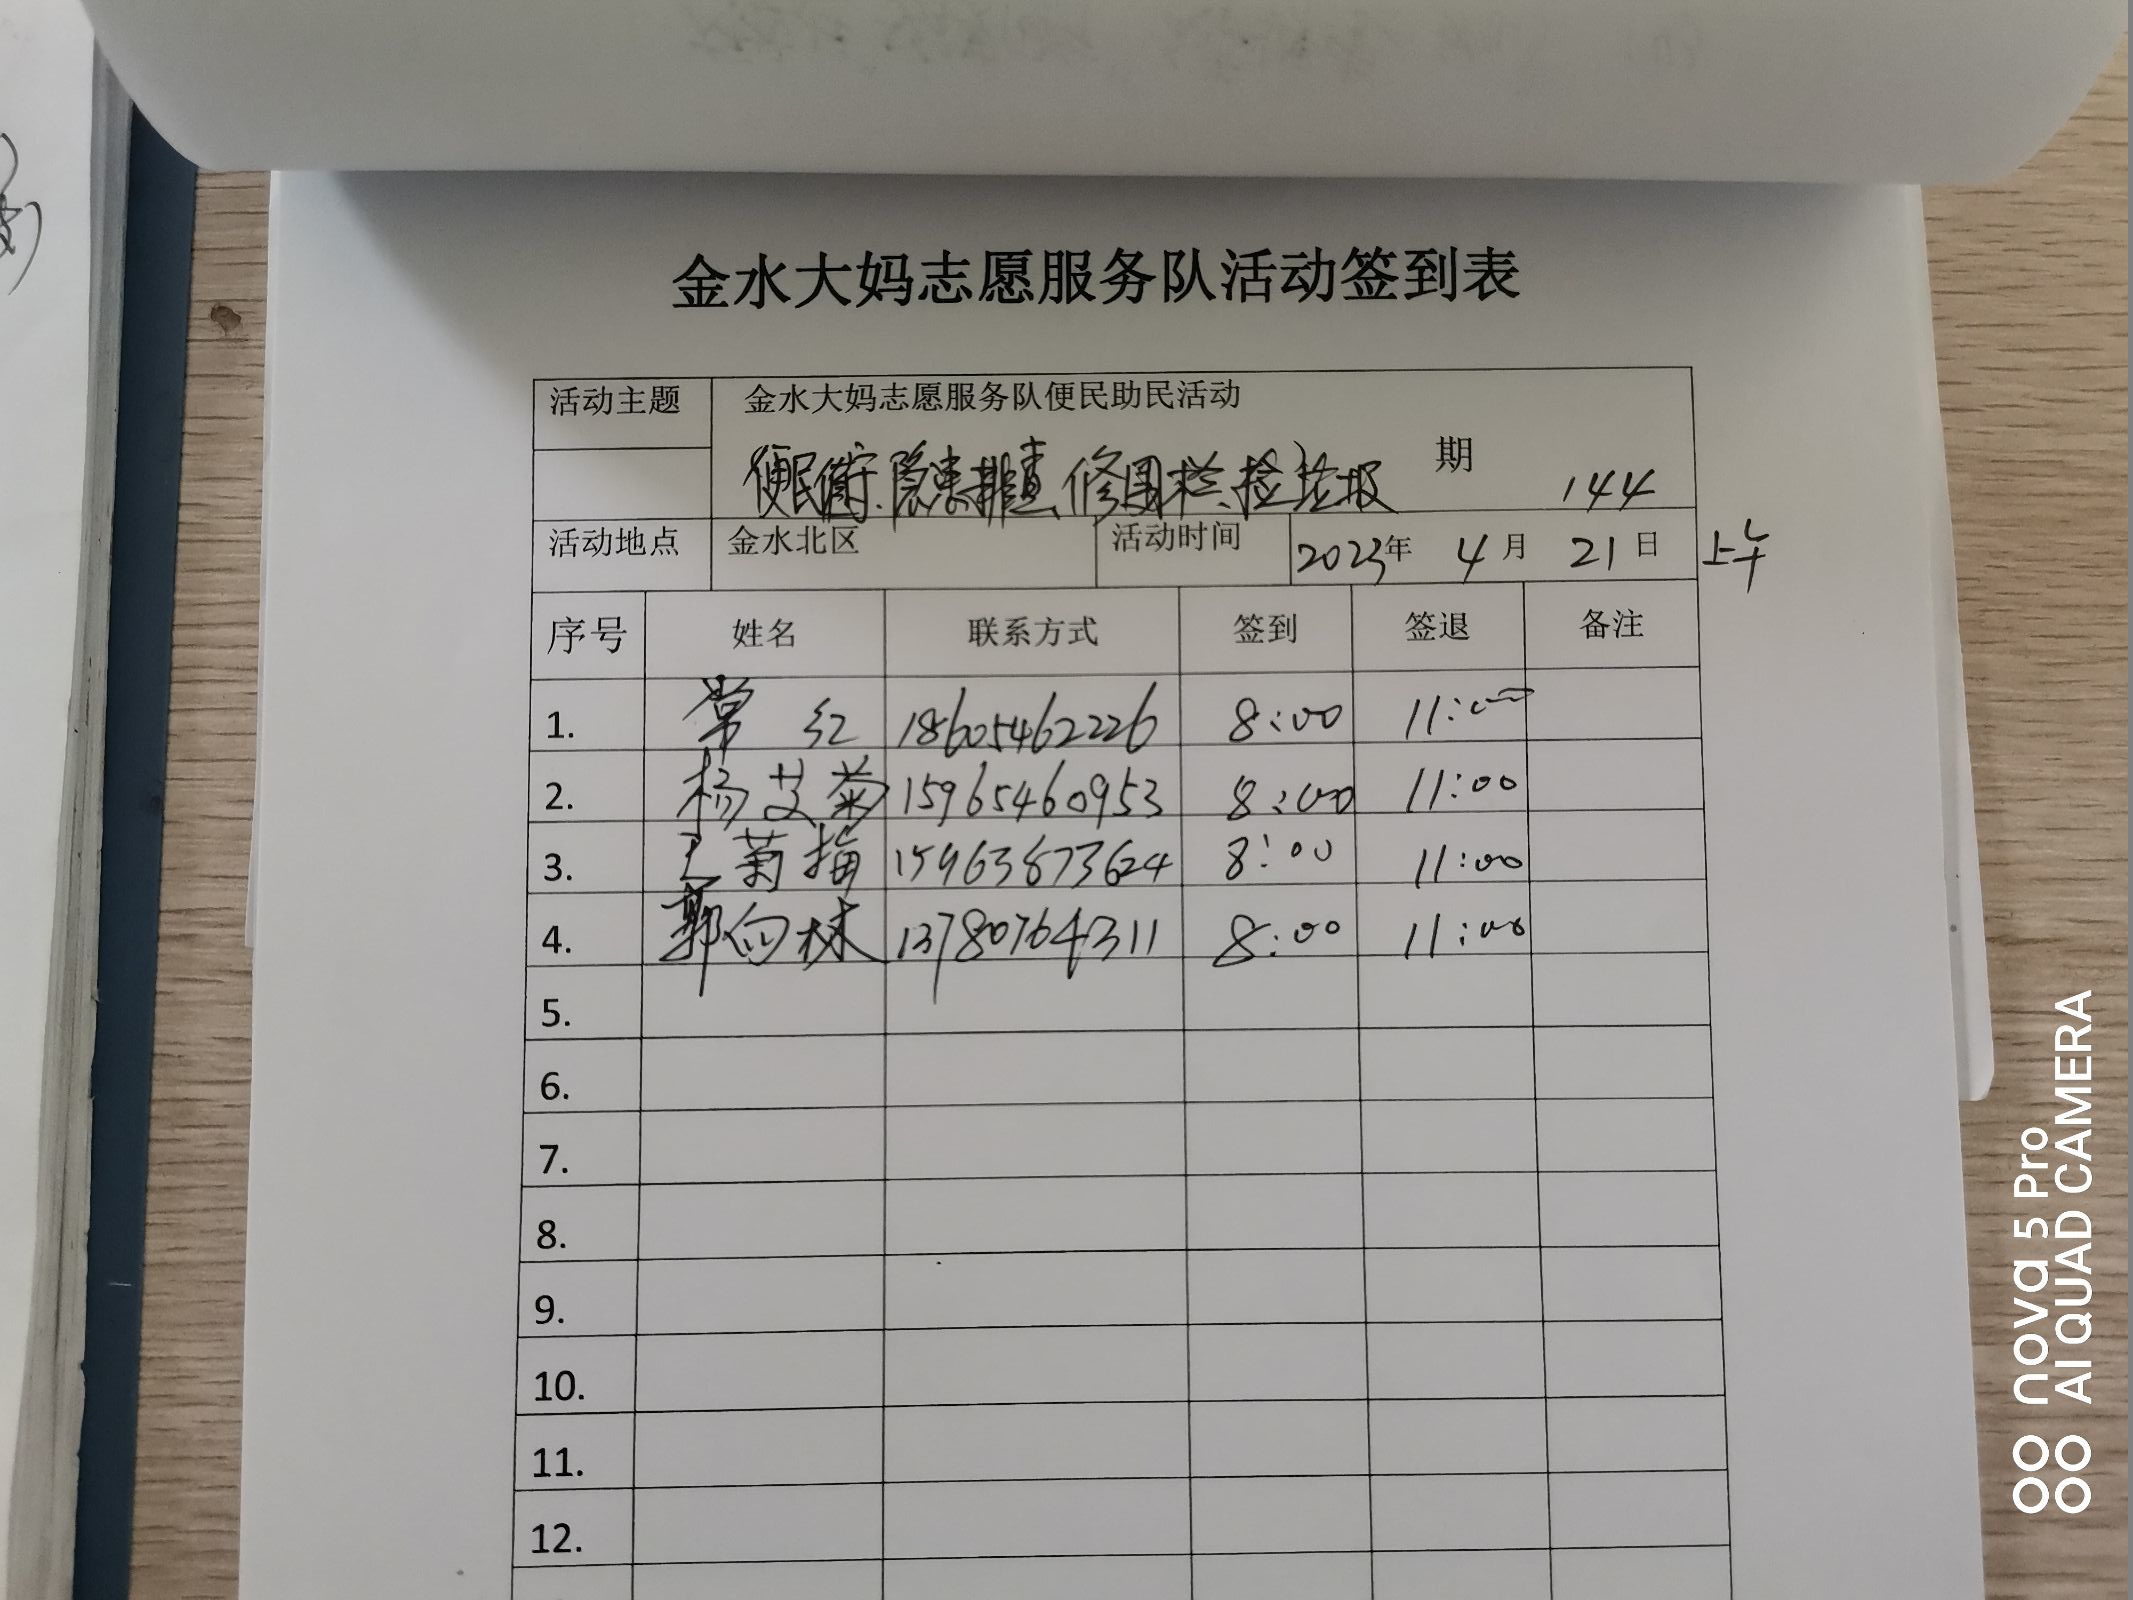 金水大妈志愿服务队活动签到表
活动主题 金水大妈志愿服务队便民助民活动
便民 隐患排查、修围栏、捡垃圾 期 144
活动地点 金水北区 活动时间 2023年 4月 21日 上午
序号 姓名 联系方式 签到 签退 备注
1. 常红 18605462226 8:00 11:00
2. 杨艾菊 15965460953 8:00 11:00
3. 王菊梅 15963873624 8:00 11:00
4. 郭向林 13780764311 8:00 11:00
5.
6.
7.
8.
9.
10.
11.
12.
nova 5 Pro
AI QUAD CAMERA